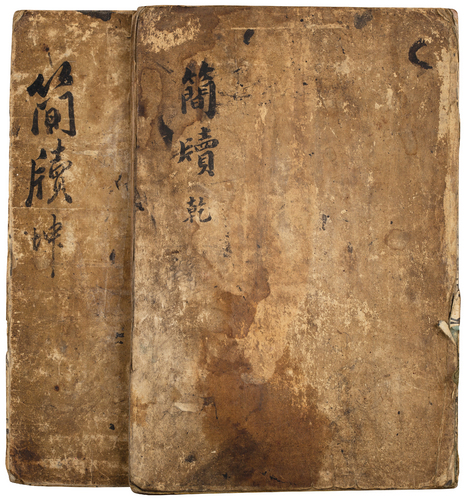 簡牘 乾
簡牘 坤